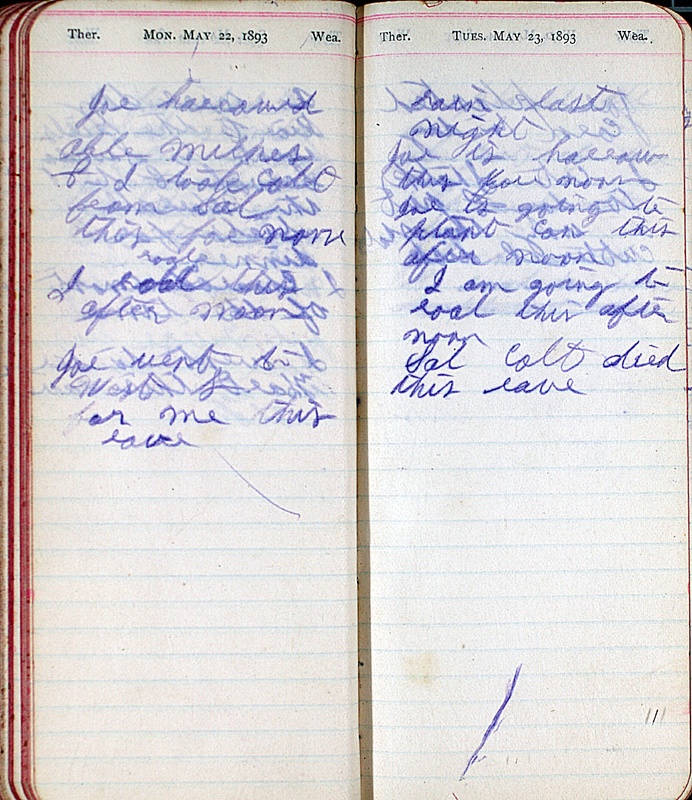 Ther. MON. MAY 22, 1893 Wea.
Joe harrowed
able Milnes
& I took Colt
from Sal
this fore none
I roal this
after noon
Joe went to
West S
for me this
eave
Ther. TUES. MAY 23, 1893 Wea.
rain last
night
Joe is harrow
this fore noon
Joe is going to
plant Con this
after noon
I am going to
roal this after
noon
Sal Colt died
this eave